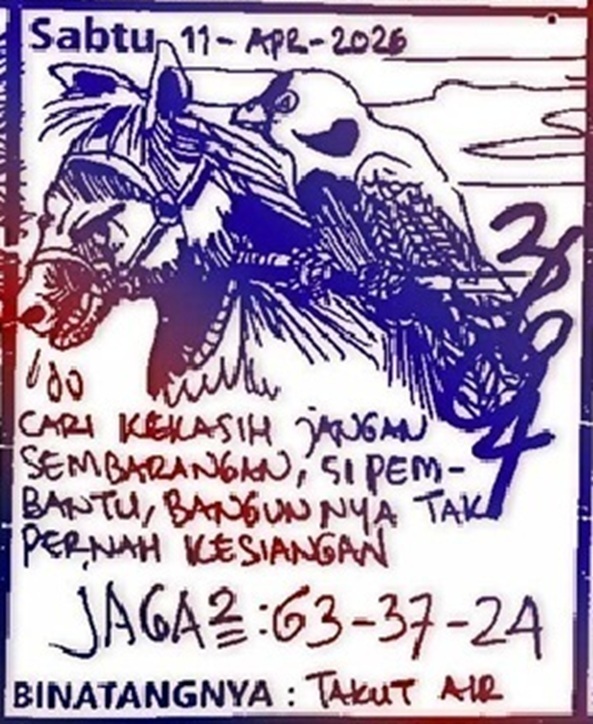 Sabtu 11-APR-2026
CARI KEKASIH JANGAN
SEMBARANGAN, SI PEM-
BANTU, BANGUNNYA TAK
PERNAH KESIANGAN
JAGA2 : 63-37-24
BINATANGNYA : TAKUT AIR